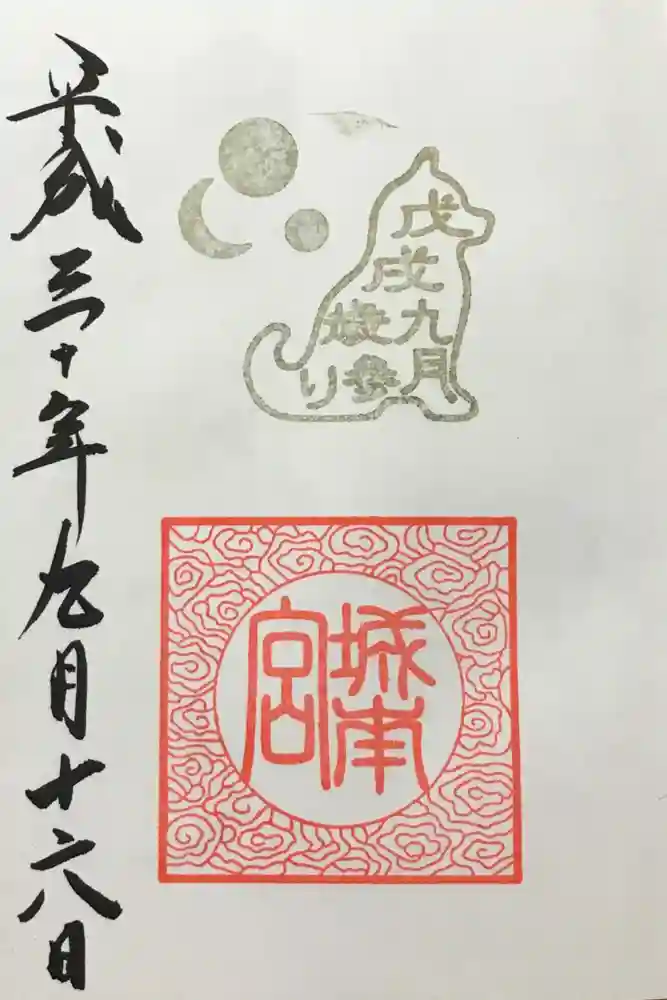 戊戌
九月
歳参り
城南
宮
平成三十年九月十六日